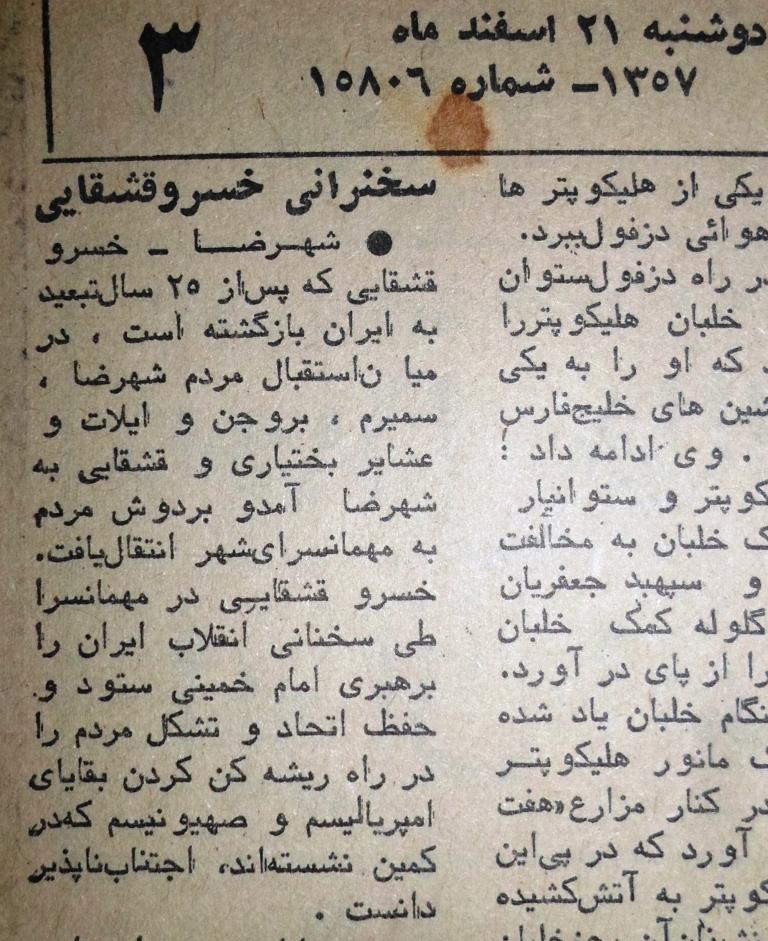 دوشنبه ۲۱ اسفند ماه
۱۳۵۷ـ شماره ۱۵۸۰۶
۳
یکی از هلیکوپتر ها
هوائی دزفول‌ببرد.
در راه دزفول‌ستوان
خلبان هلیکوپتررا
که او را به یکی
های خلیج‌فارس
. وی ادامه داد :
و ستوانیار
خلبان به مخالفت
و سپهبد جعفریان
گلوله کمک خلبان
را از پای در آورد.
خلبان یاد شده
مانور هلیکوپتـر
در کنار مزارع«هفت
آورد که در پی‌این
به آتش‌کشیده
سخنرانی خسروقشقایی
● شهـرضــا ـ خسرو
قشقایی که پس‌از ۲۵ سال‌تبعید
به ایران بازگشته است ، در
میا ن‌استقبال مردم شهرضا ،
سمیرم ، بروجن و ایلات و
عشایر بختیاری و قشقایی به
شهرضا آمدو بردوش مردم
به مهمانسرای‌شهر انتقال‌یافت.
خسرو قشقایـی در مهمانسرا
طی سخنانی انقلاب ایران را
برهبری امام خمینی ستود و
حفظ اتحاد و تشکل مردم را
در راه ریشه کن کردن بقایای
امپریالیسم و صهیونیسم که‌در
کمین نشسته‌اند، اجتناب‌ناپذیر
دانست .